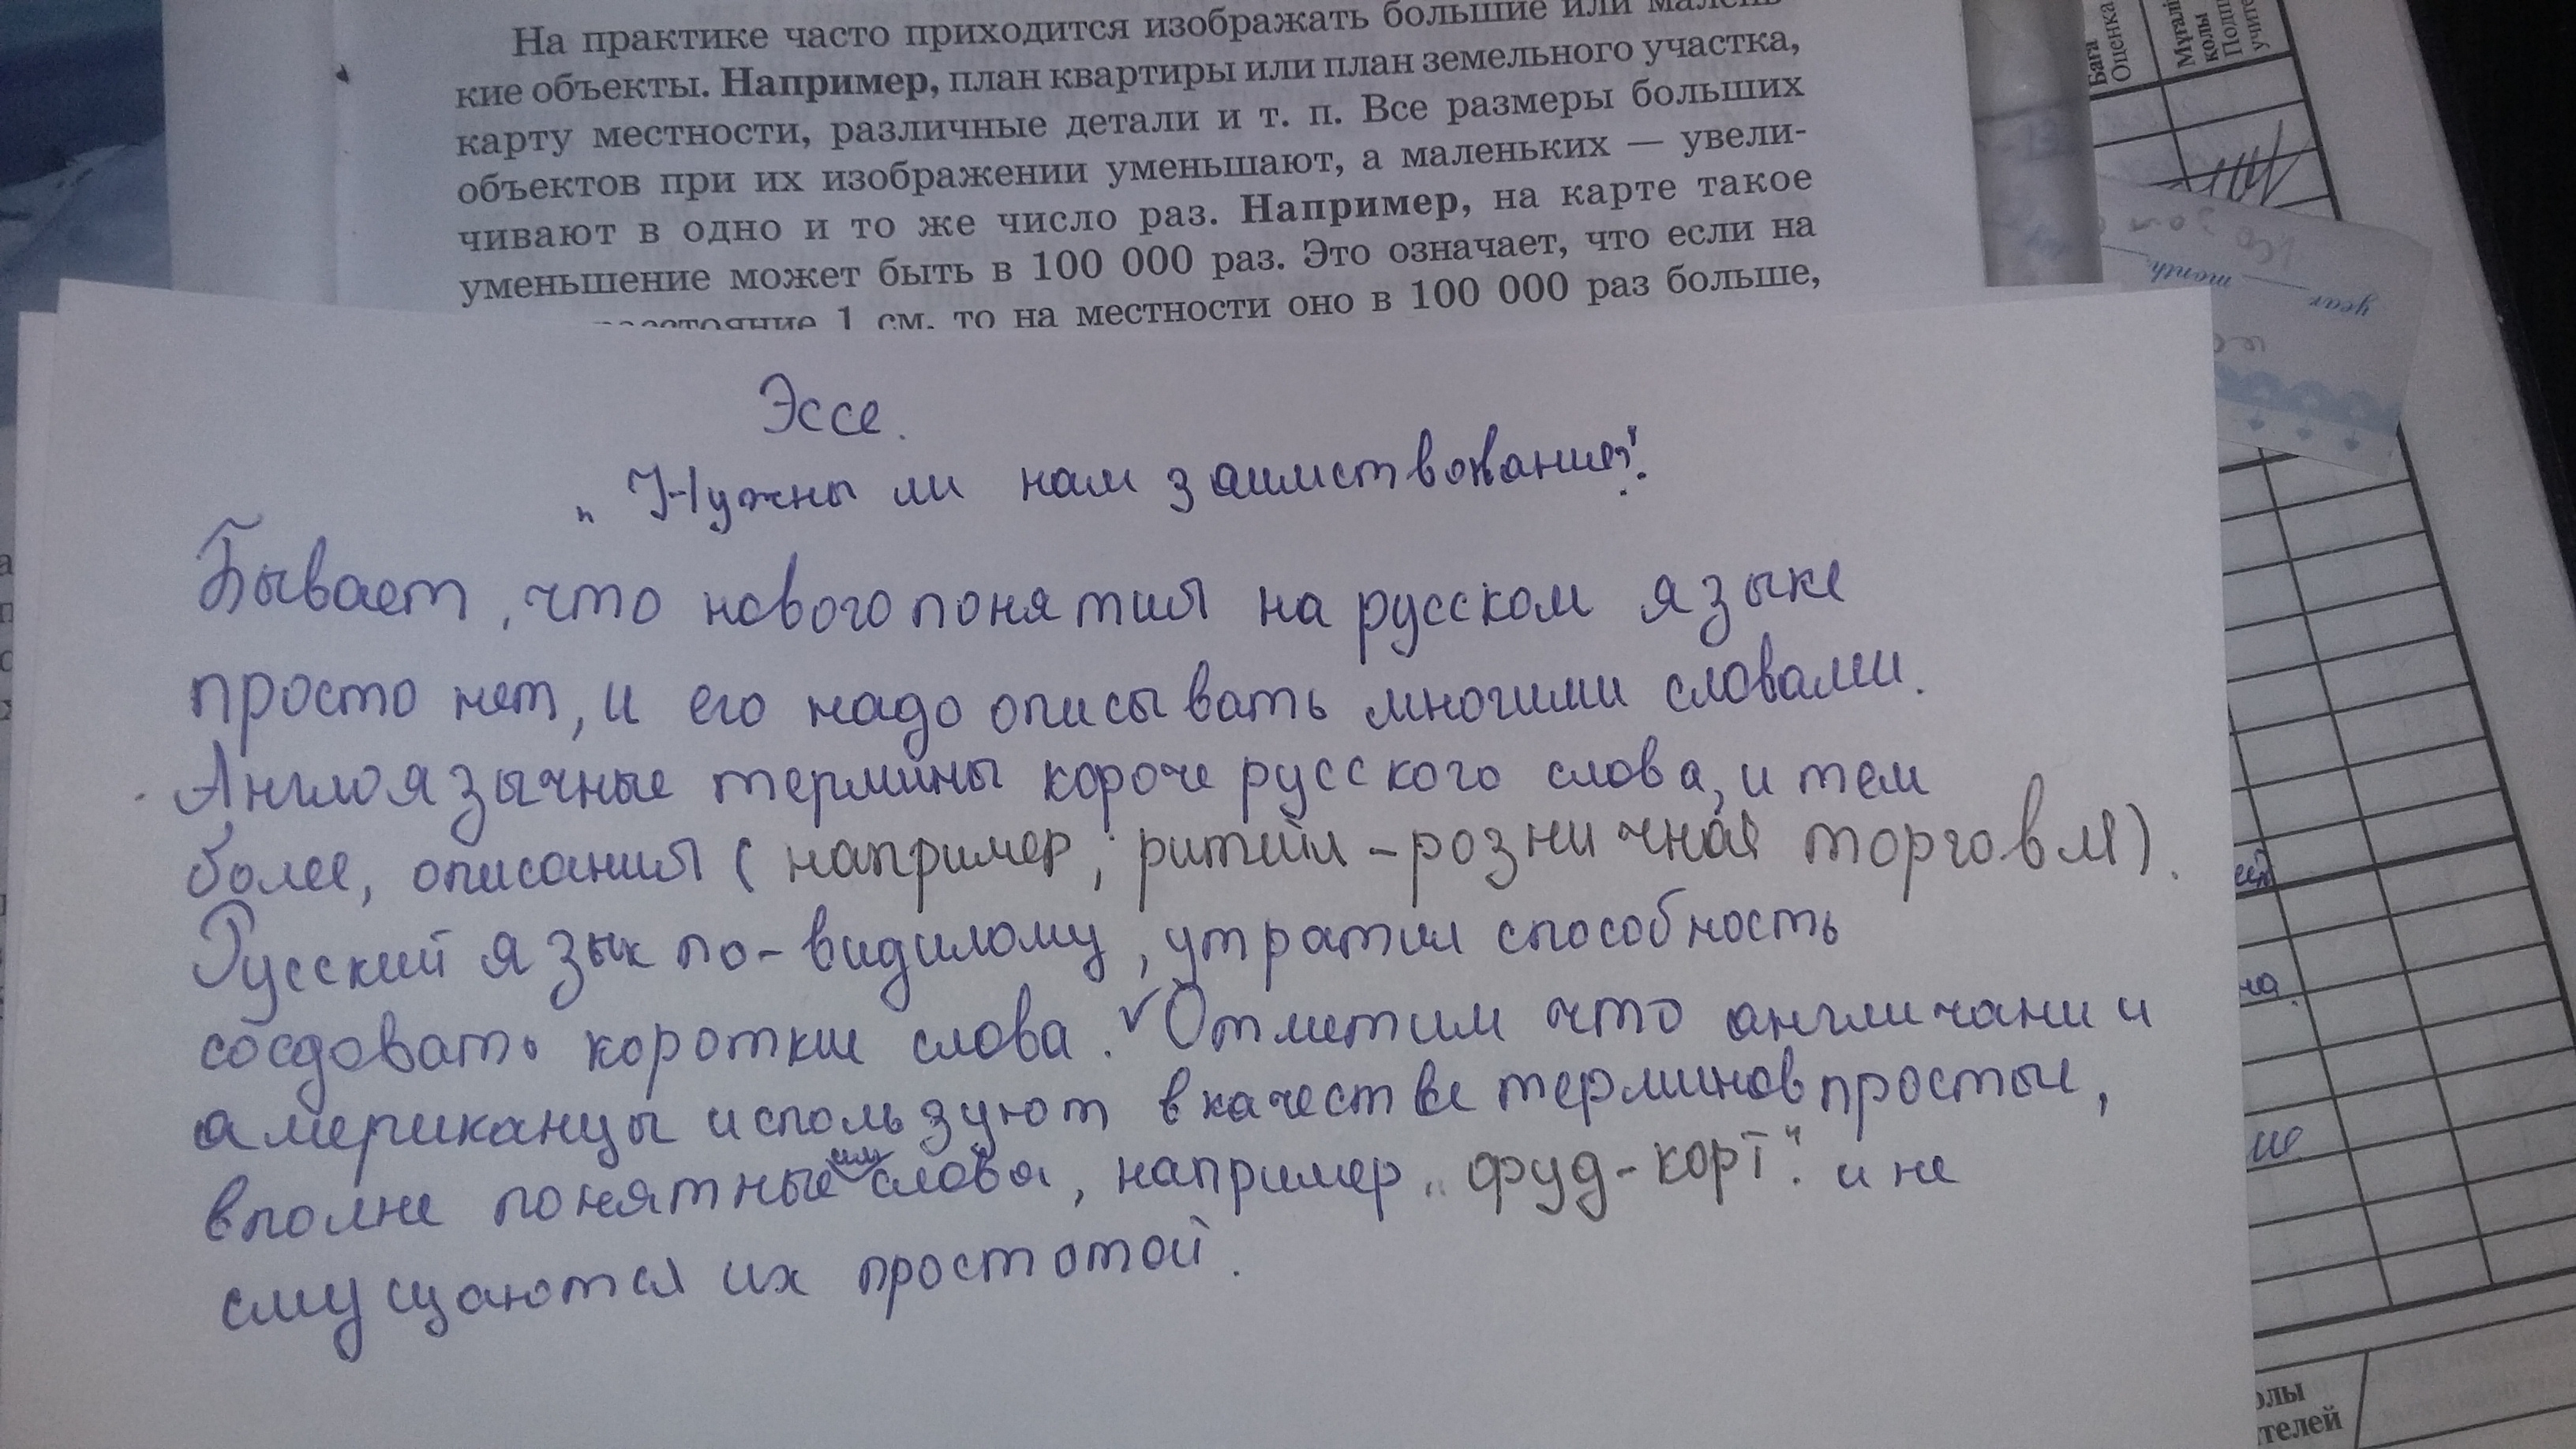 На практике часто приходится изображать большие или малень-
кие объекты. Например, план квартиры или план земельного участка,
карту местности, различные детали и т. п. Все размеры больших
объектов при их изображении уменьшают, а маленьких — увели-
чивают в одно и то же число раз. Например, на карте такое
уменьшение может быть в 100 000 раз. Это означает, что если на
расстояние 1 см, то на местности оно в 100 000 раз больше,
Эссе.
„Нужны ли нам заимствования?"
Бывает, что нового понятия на русском языке
просто нет, и его надо описывать многими словами.
Англоязычные термины короче русского слова, и тем
более, описания (например, ритейл - розничная торговля).
Русский язык по-видимому, утратил способность
сосдовать короткие слова. Отметим что англичани и
американцы используют в качестве терминов простые,
вполне понятные им слова, например „фуд-корт". и не
смущаются их простотой.
Баға
Оценка
Мұғалі
қолы
Подп
учите
month
year
на
ие
олы
ителей